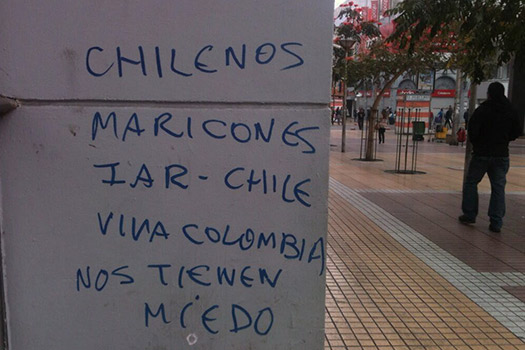 CHILENOS
MARICONES
IAR-CHILE
VIVA COLOMBIA
NOS TIENEN
MIEDO